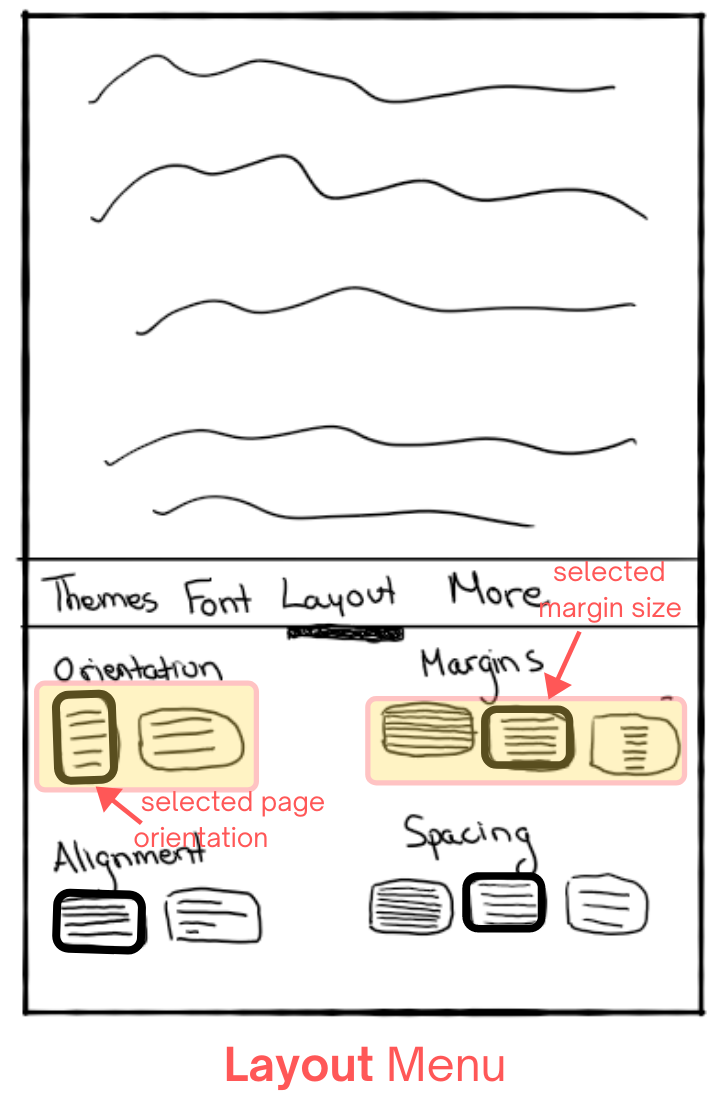 Themes Font Layout More
selected
margin size
Orientation
Margins
selected page
orientation
Alignment
Spacing
Layout Menu